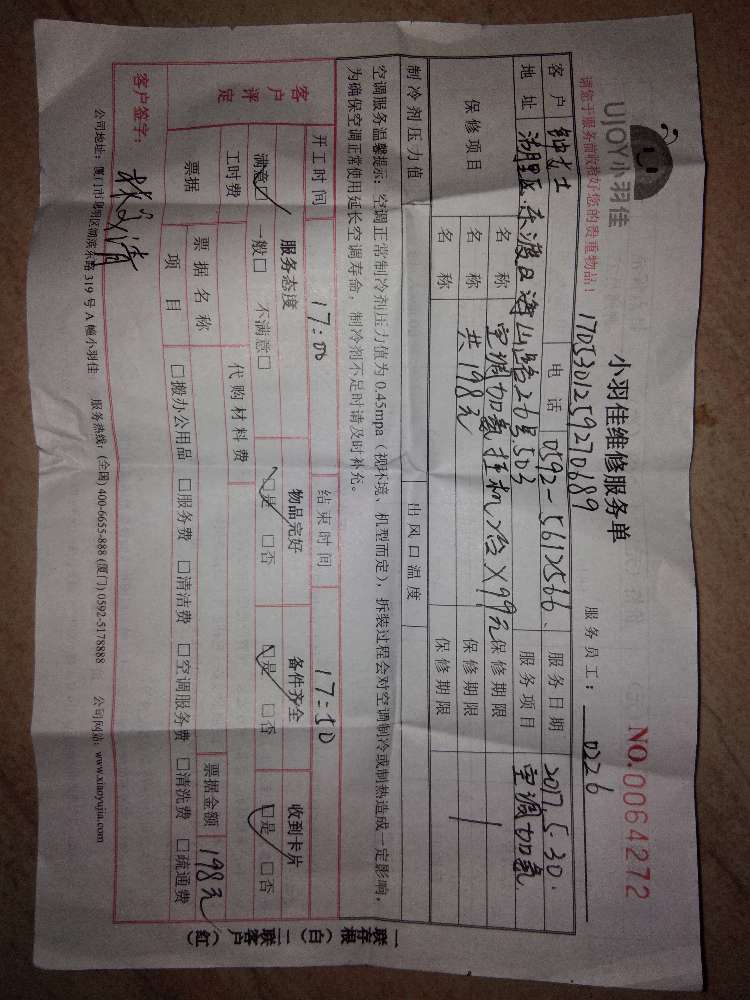 UJOY小羽佳
小羽佳维修服务单
NO.0064272
请您于服务前收放好您的贵重物品!
1705301259270689
服务员工: 0226
客户 钟女士 电话 0592-5612566 服务日期 2017.5.30.
地址 湖里区东渡日海山路26号503 服务项目 空调加氨
保修项目 名称 空调加氨挂机2台×99元 保修期限
名称 共198元 保修期限
名称 保修期限
制冷剂压力值 出风口温度
空调服务温馨提示:空调正常制冷剂压力值为0.45mpa(视环境、机型而定),拆装过程会对空调制冷或制热造成一定影响,
为确保空调正常使用延长空调寿命,制冷剂不足时请及时补充。
开工时间 17:00 结束时间 17:50
客户评定 服务态度 物品完好 备件齐全 收到卡片
满意□ 一般□ 不满意□ □是 □否 □是 □否 □是 □否
工时费 代购材料费
票据 票据名称 票据金额 198元
项目 □搬办公用品 □服务费 □清洁费 □空调服务费 □清洗费 □疏通费
客户签字:
公司地址:厦门市思明区湖滨东路319号A幢小羽佳 服务热线:(全国)400-6655-888 (厦门)0592-5178888 公司网站:www.xiaoyujia.com
一联存根(白)二联客户(红)